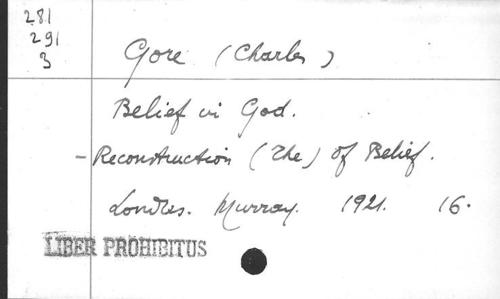 281
291
3
Gore (Charles)
Belief in God.
- Reconstruction (The) of Belief.
Londres. Murray. 1921. 16.
LIBER PROHIBITUS